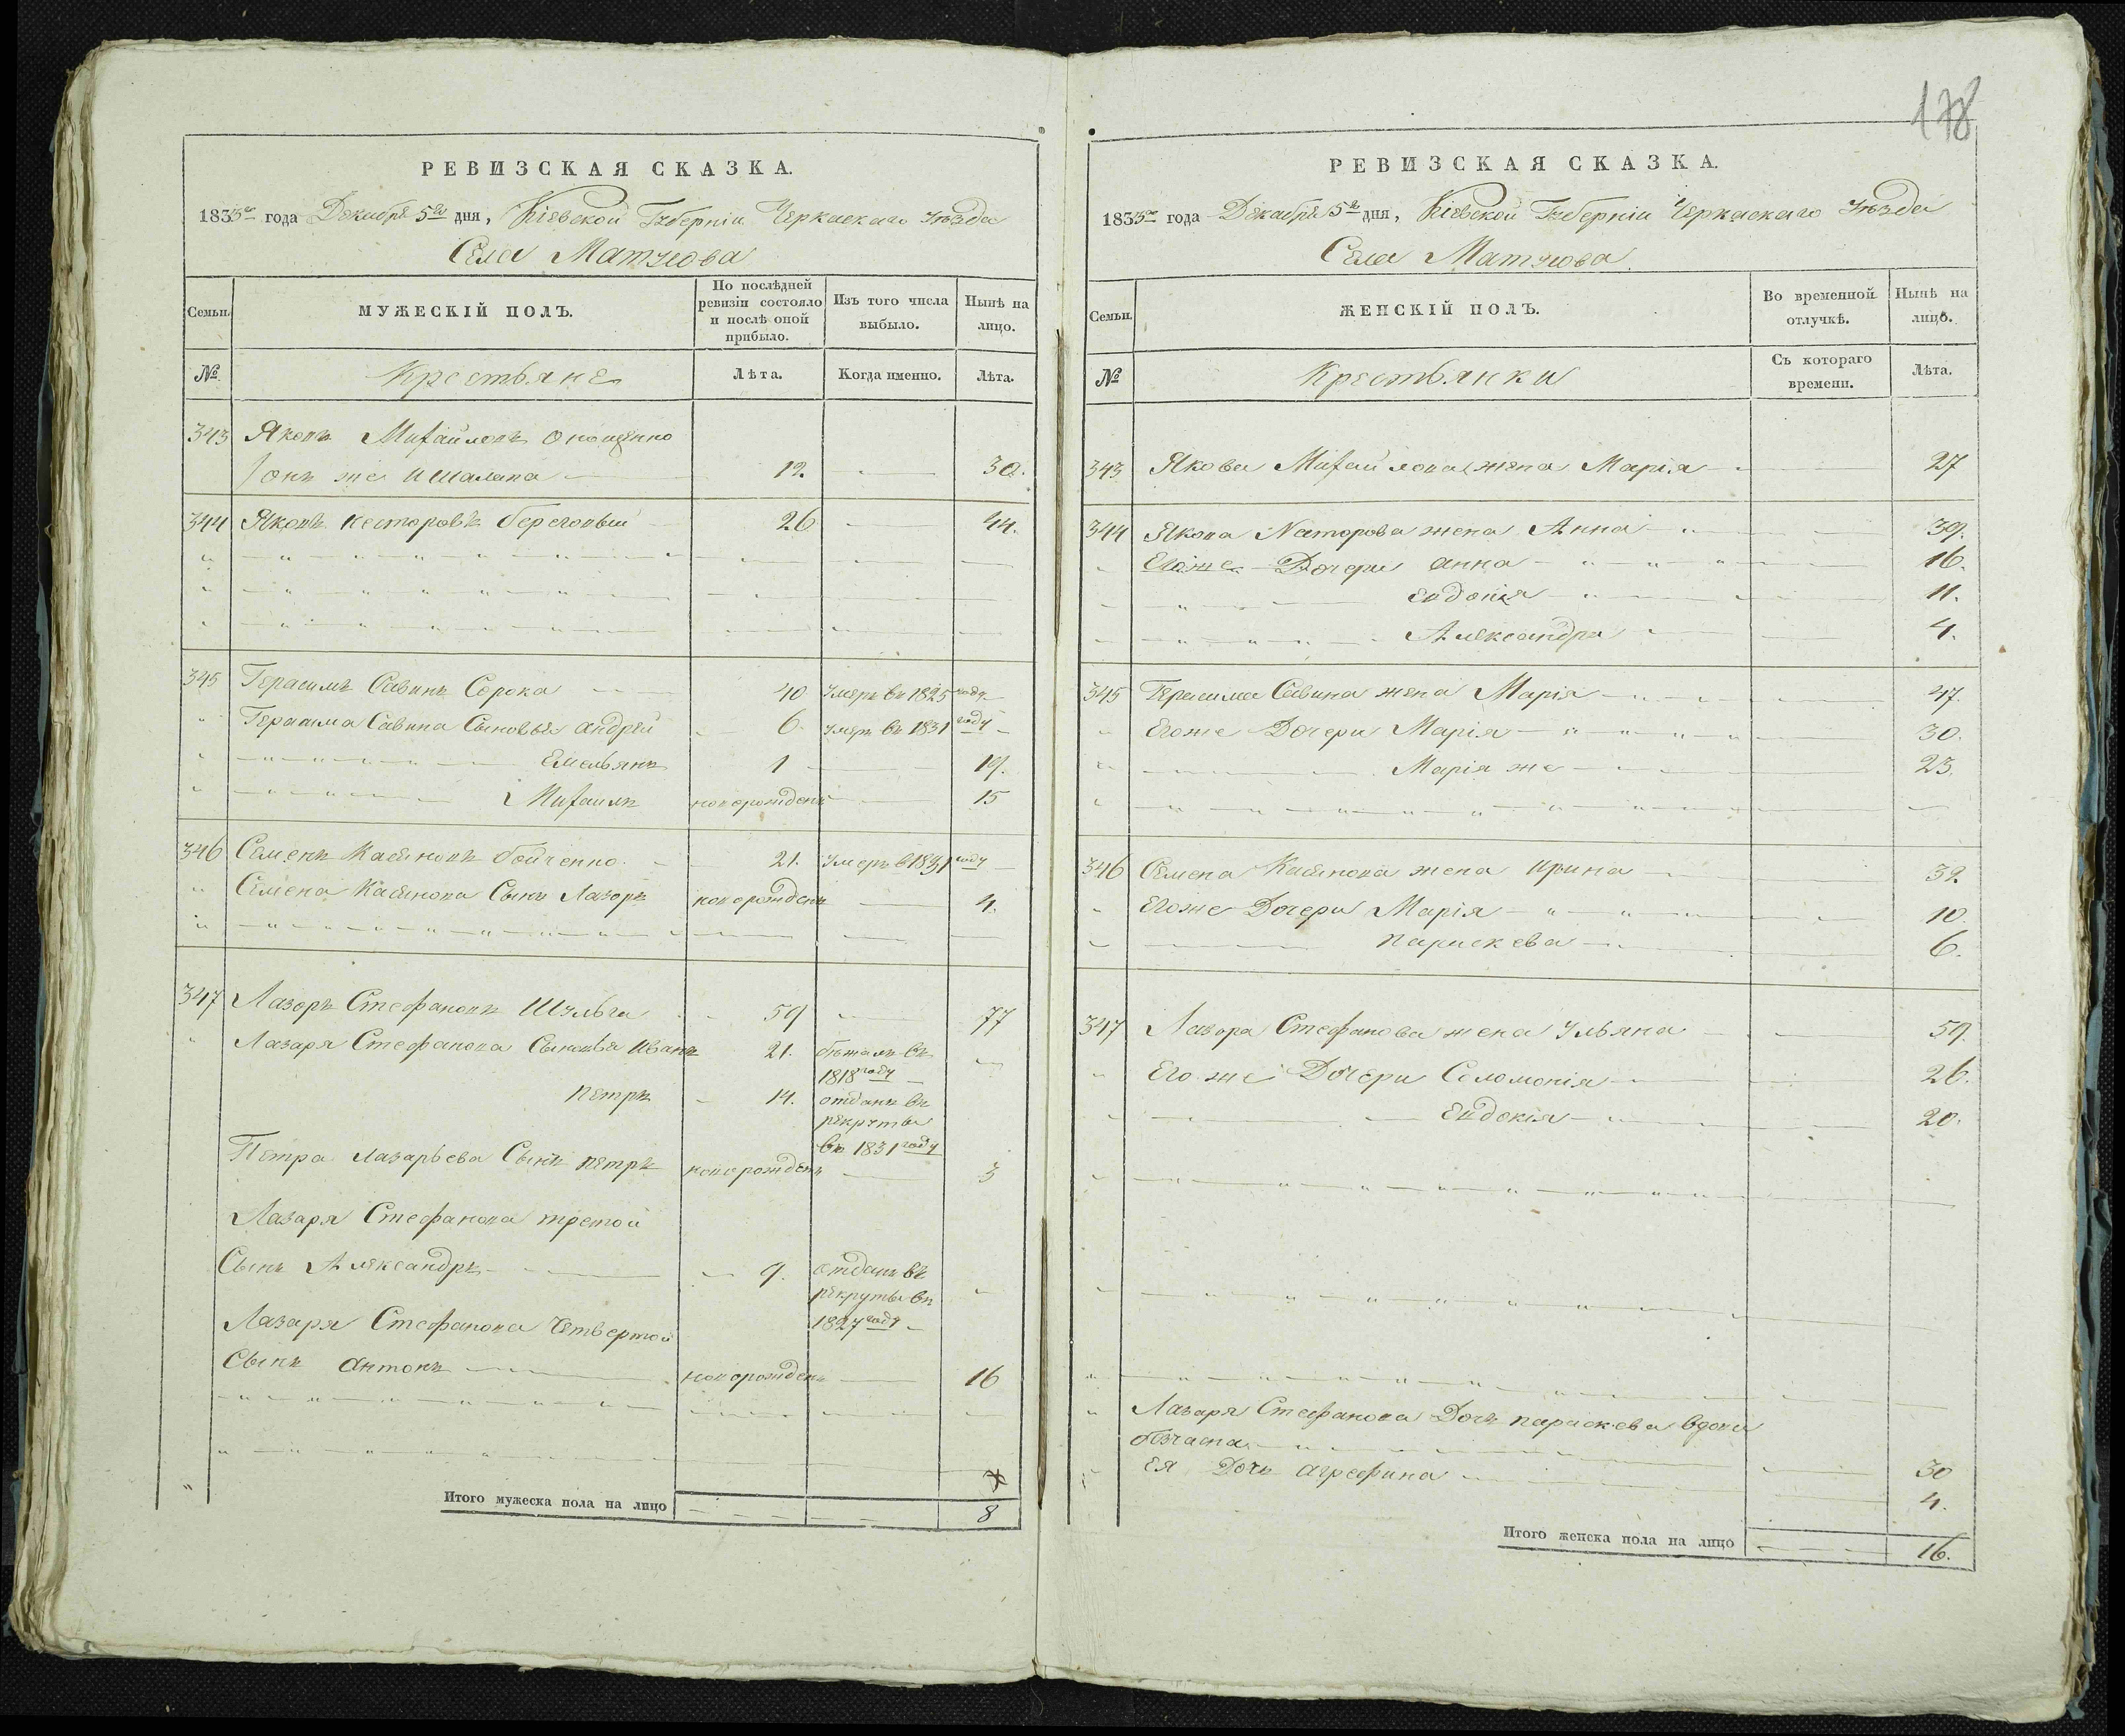 178
РЕВИЗСКАЯ СКАЗКА.
1835го года Декабря 5го дня, Кіевской Губерніи Черкаскаго Уѣзда
Села Матусова
Семьи.
МУЖЕСКІЙ ПОЛЪ.
По послѣдней ревизіи состояло и послѣ оной прибыло.
Изъ того числа выбыло.
Нынѣ на лицо.
№
Крестьяне
Лѣта.
Когда именно.
Лѣта.
343 Яковъ Михайловъ
онъ же 12. 30.
344 Яковъ Несторовъ Береговый 26 44.
345 Герасимъ Савинъ Сорока 40 умеръ въ 1825 году
Герасима Савина Сыновья андрей 6. умеръ въ 1831 году
Емельянъ 1 19.
Михаилъ новорожденъ 15
346 Семенъ Касяновъ Бойченко 21. умеръ в 1831 году
Семена Касянова Сынъ Лазорь новорожденъ 4.
347 Лазорь Стефановъ Шульга 59 77
Лазаря Стефанова Сыновья Иванъ 21. бѣжалъ въ
1818 году
петръ 14. отданъ въ
рекруты
въ 1831 году
Петра Лазарьева Сынъ петръ новорожденъ 3
Лазаря Стефанова третой
Сынъ Александръ 9. отданъ въ
рекруты въ
1827 году
Лазаря Стефанова Четвертой
Сынъ антонъ новорожденъ 16
Итого мужеска пола на лицо 8
РЕВИЗСКАЯ СКАЗКА.
1835го года Декабря 5го дня, Кіевской Губерніи Черкаскаго Уѣзда
Села Матусова
Семьи.
ЖЕНСКІЙ ПОЛЪ.
Во временной отлучкѣ.
Нынѣ на лицо.
№
Крестьянки
Съ котораго времени.
Лѣта.
343 Якова Михайлова жена Марія 27
344 Якова Несторова жена Анна 39.
Егоже Дочери анна 16.
Евдокія 11.
Александра 4.
345 Герасима Савина жена Марія 47.
Егоже Дочери Марія 30.
Марія же 23.
346 Семена Касянова жена ирина 32.
Егоже Дочери Марія 10.
параскева 6.
347 Лазора Стефанова жена Ульяна 59.
Его же Дочери Соломонія 26.
Евдокія 20.
Лазаря Стефанова Дочь параскева вдова
30
ея Дочь агрефина 4.
Итого женска пола на лицо 16.